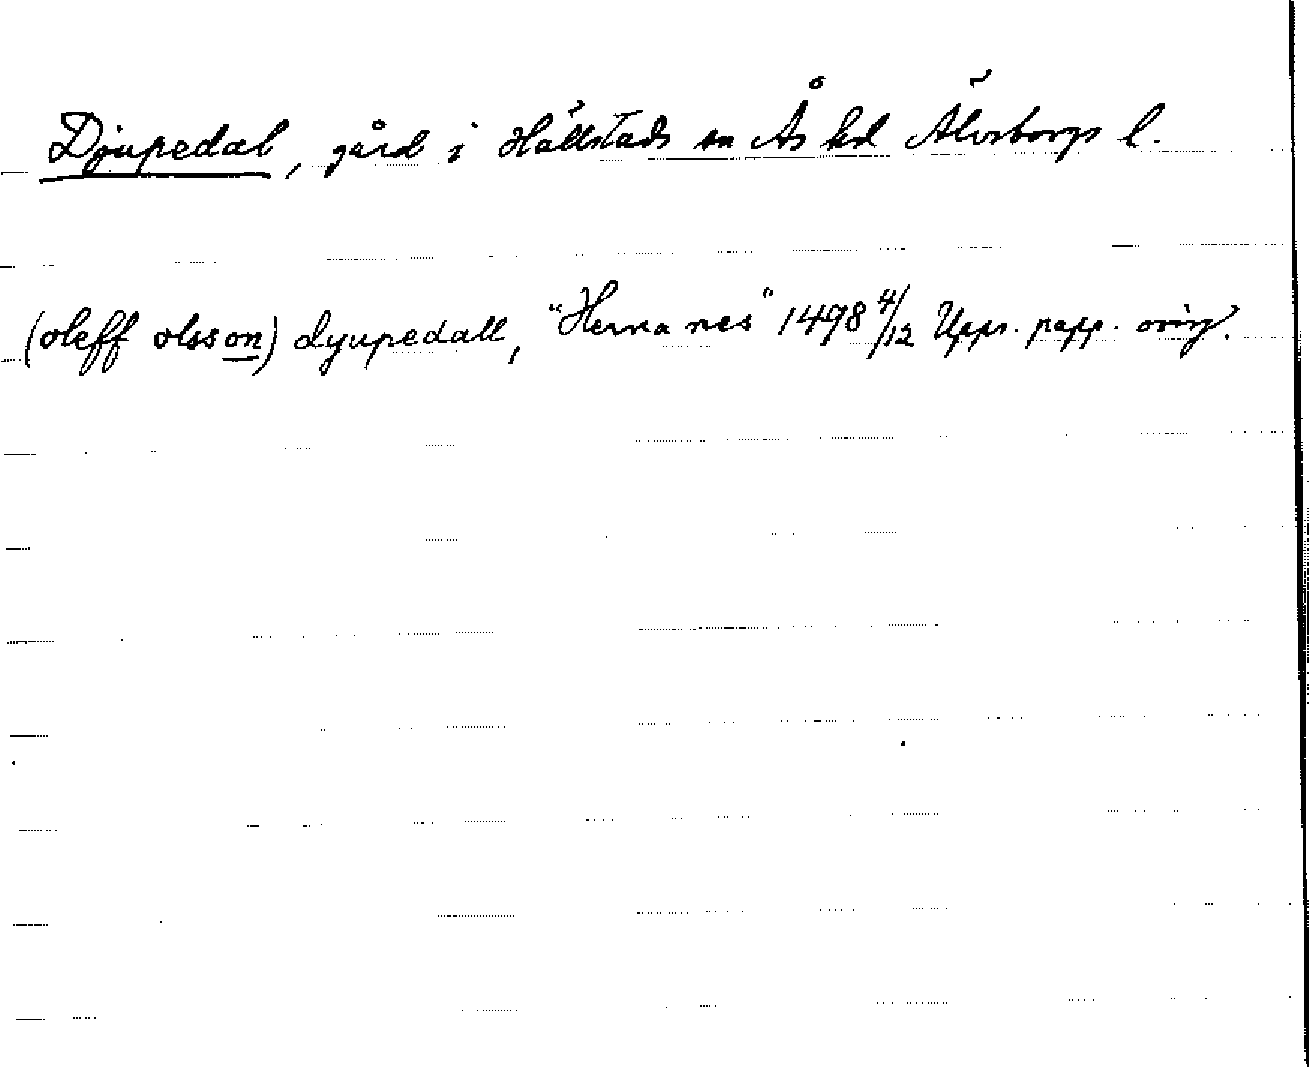 Djupedal, gård i Hällstads sn Ås hd Älvsborgs l.
(oleff olsson) dyupedall, "Herra nes" 1498 4/12 Upps. papp. orig.